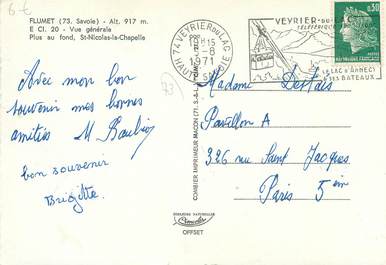 6€
FLUMET (73. Savoie) - Alt. 917 m.
E Cl. 20 - Vue générale
Plus au fond, St-Nicolas-la-Chapelle
Avec mon bon
souvenir mes bonnes
amitiés M
bon souvenir
Brigitte
74 VEYRIER DU LAC
HTE SAVOIE
8
1971
VEYRIER-DU-LAC
TÉLÉPHÉRIQUE
LE LAC D'ANNECY
SES BATEAUX
0,30
73
COMBIER IMPRIMEUR MACON (71. S.-L.)
Madame
Pavillon A
326 rue Saint Jacques
Paris 5èm
COULEURS NATURELLES
OFFSET